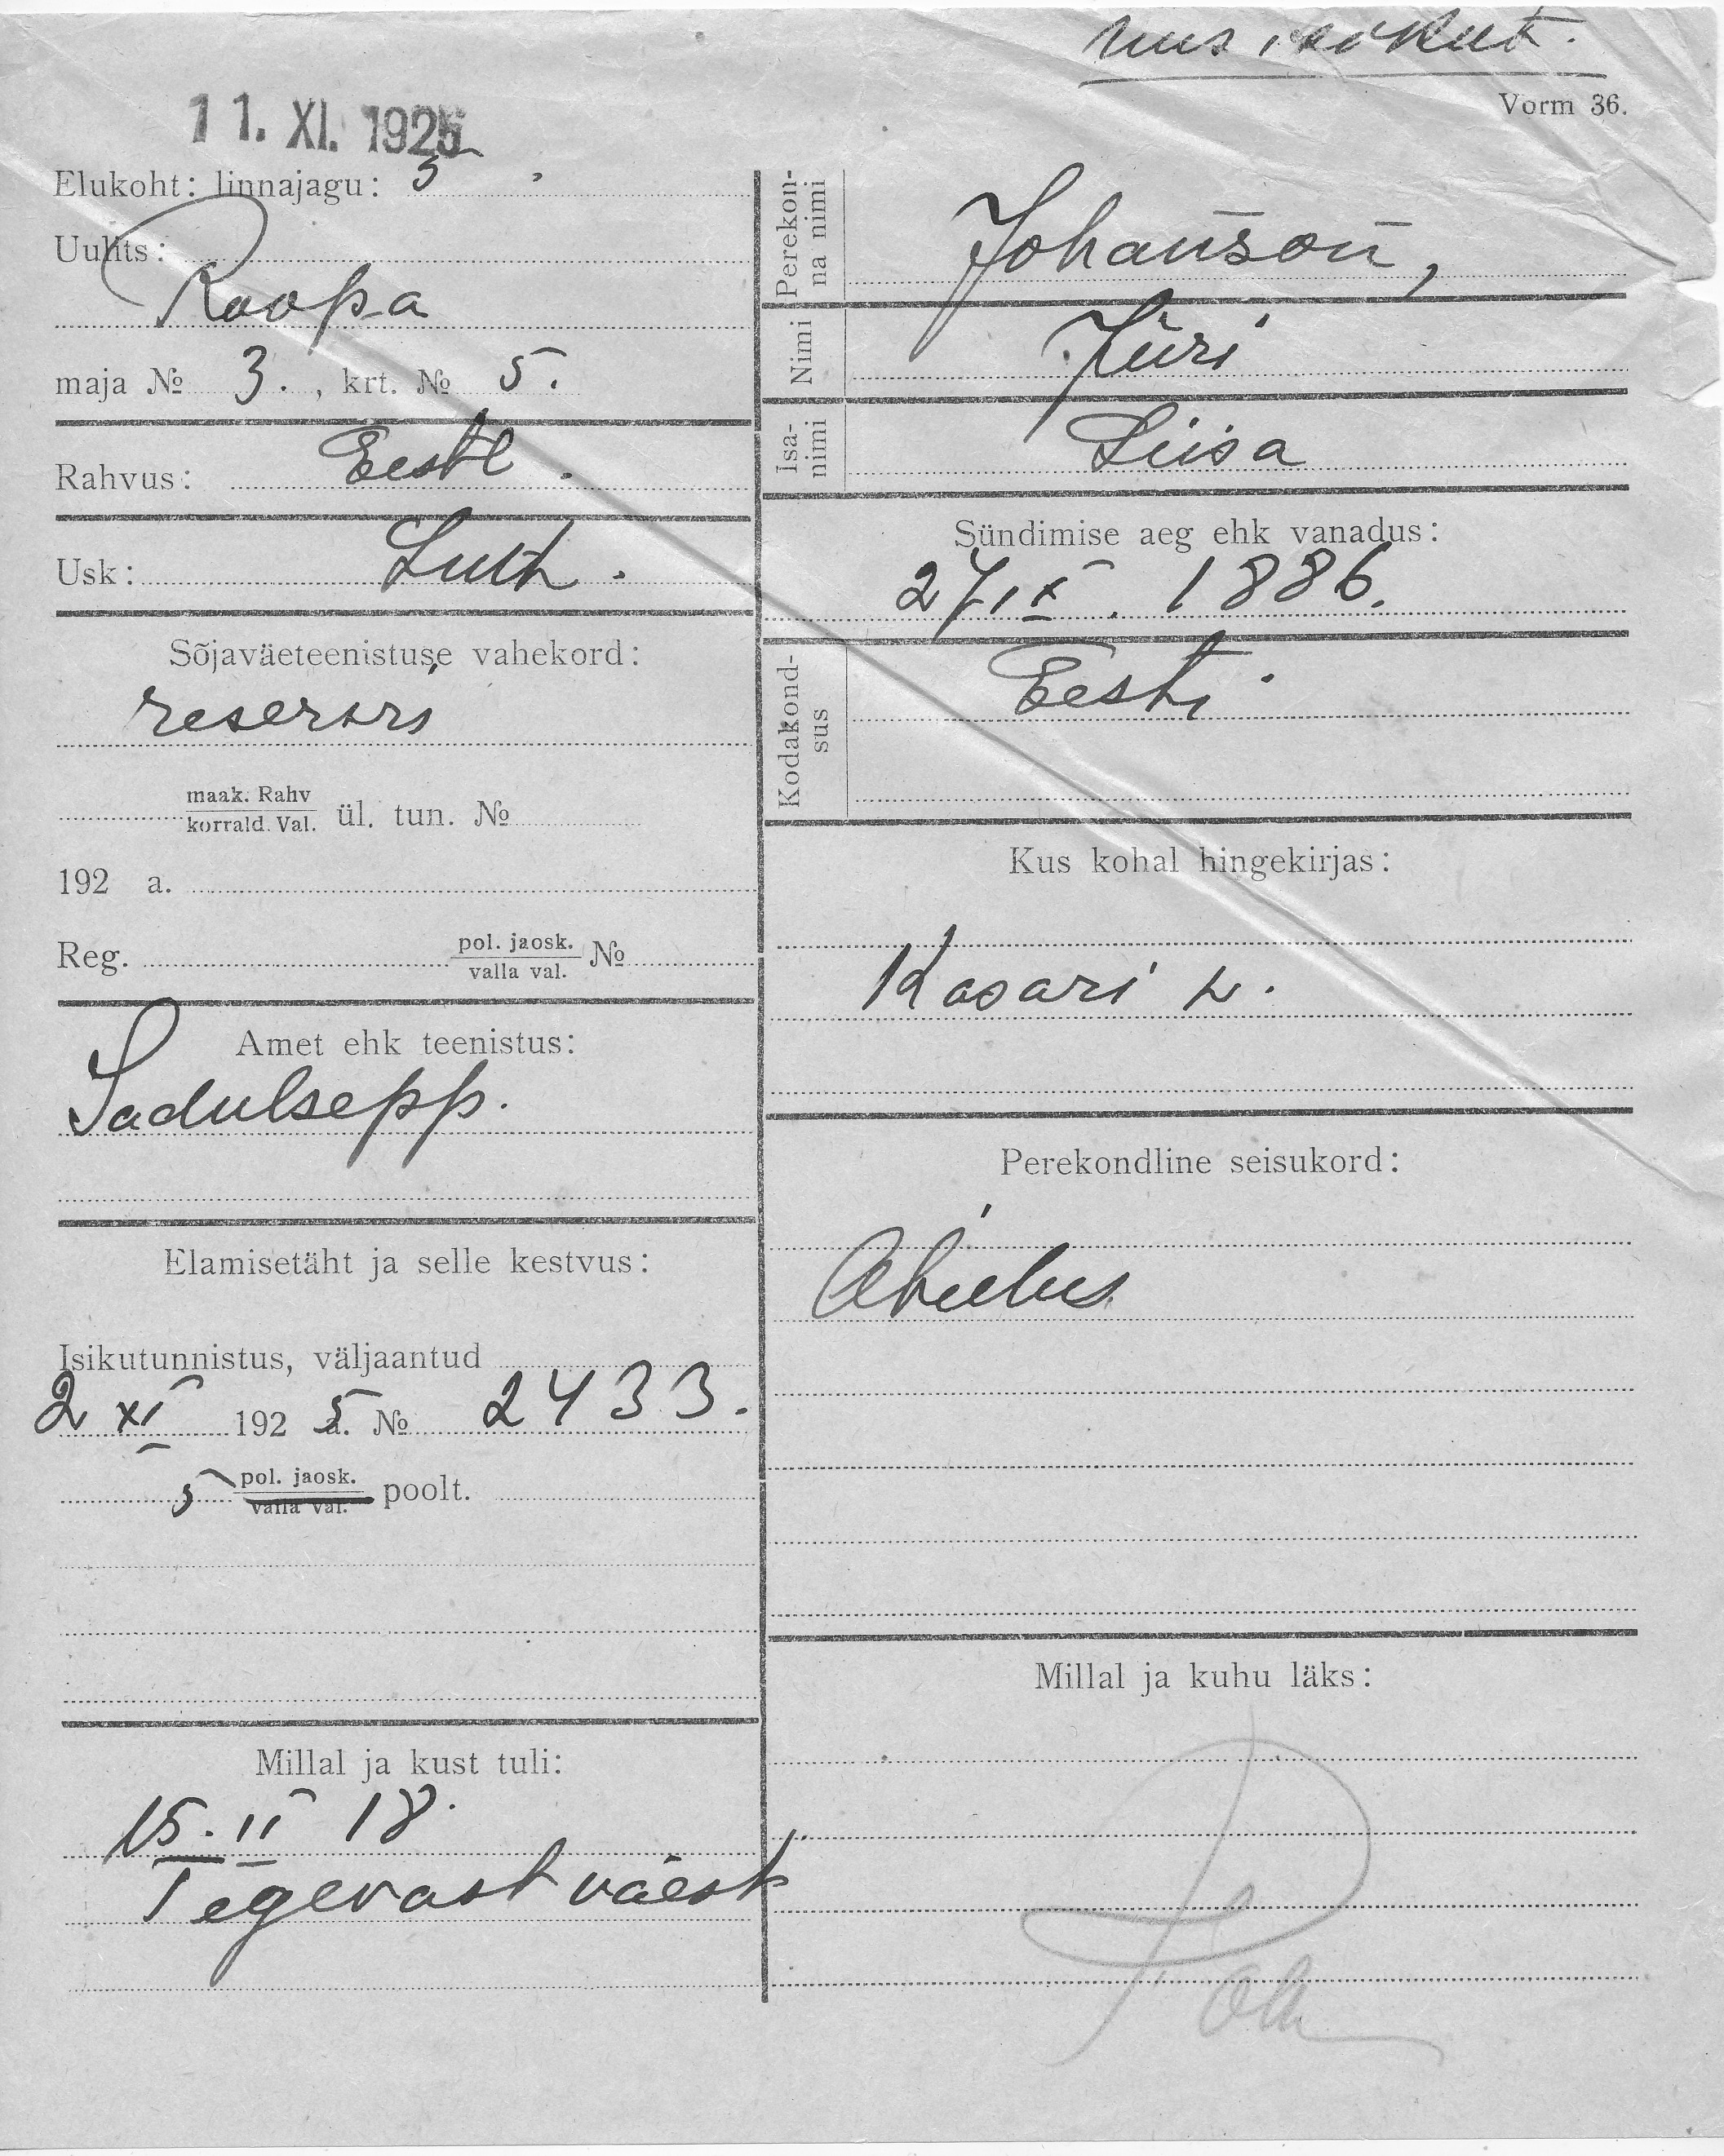 uus isikut.
Vorm 36.
11. XI. 1925
Elukoht: linnajagu: 5
Uulits:
Roopa
maja № 3. , krt. № 5.
Rahvus: Eestl.
Usk: Luth.
Sõjaväeteenistuse vahekord:
reservis
maak. Rahv
korrald. Val. ül. tun. №
192 a.
Reg. pol. jaosk.
valla val. №
Amet ehk teenistus:
Sadulsepp.
Elamisetäht ja selle kestvus:
Isikutunnistus, väljaantud
2 XI 192 5 a. № 2433.
5 pol. jaosk.
valla val. poolt.
Millal ja kust tuli:
15. II 18.
Tegevast väest
Perekon-
na nimi
Johanson,
Nimi
Jüri
Isa-
nimi
Liisa
Sündimise aeg ehk vanadus:
27 IX. 1886.
Kodakond-
sus
Eesti.
Kus kohal hingekirjas:
Kasari v.
Perekondline seisukord:
Abielus
Millal ja kuhu läks: